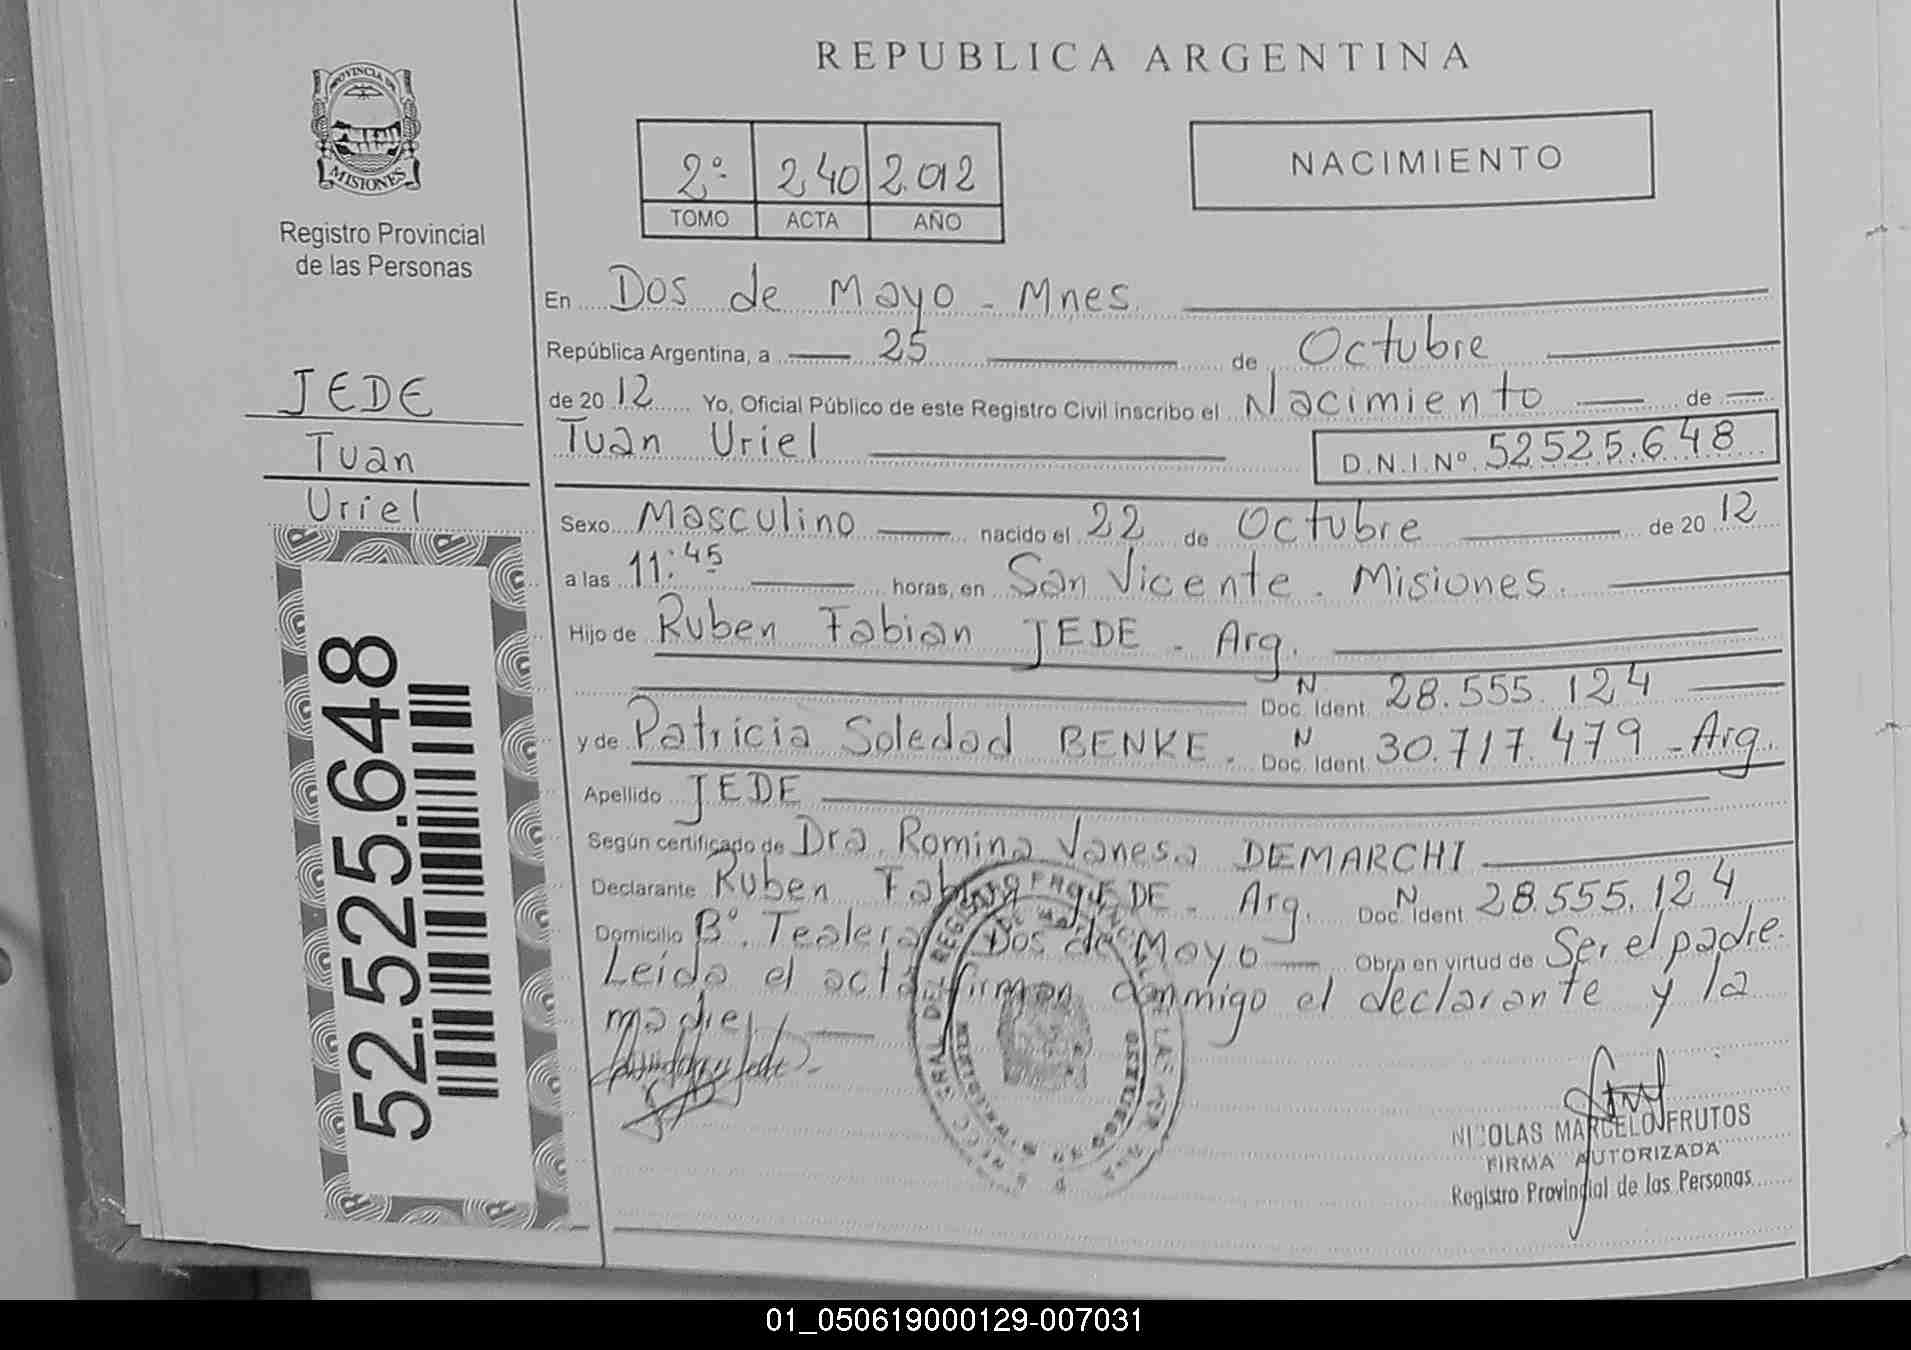 REPUBLICA ARGENTINA
PROVINCIA DE
MISIONES
Registro Provincial
de las Personas
2º 240 2.012
TOMO ACTA AÑO
NACIMIENTO
JEDE
Tuan
Uriel
52.525.648
En Dos de Mayo - Mnes.
República Argentina, a 25 de Octubre
de 2012 Yo, Oficial Público de este Registro Civil inscribo el Nacimiento de
Tuan Uriel D.N.I.Nº 52525.648
Sexo Masculino nacido el 22 de Octubre de 2012
a las 11:45 horas, en San Vicente - Misiones.
Hijo de Ruben Fabian JEDE - Arg.
Doc. Ident. N 28.555.124
y de Patricia Soledad BENKE. Doc. Ident. N 30.717.479 - Arg.
Apellido JEDE
Según certificado de Dra. Romina Vanesa DEMARCHI
Declarante Ruben Fabian JEDE - Arg. Doc. Ident. N 28.555.124
Domicilio Bº. Tealera Dos de Mayo Obra en virtud de Ser el padre.
Leida el acta firman conmigo el declarante y la
madre
NICOLAS MARCELO FRUTOS
FIRMA AUTORIZADA
Registro Provincial de las Personas
01_050619000129-007031